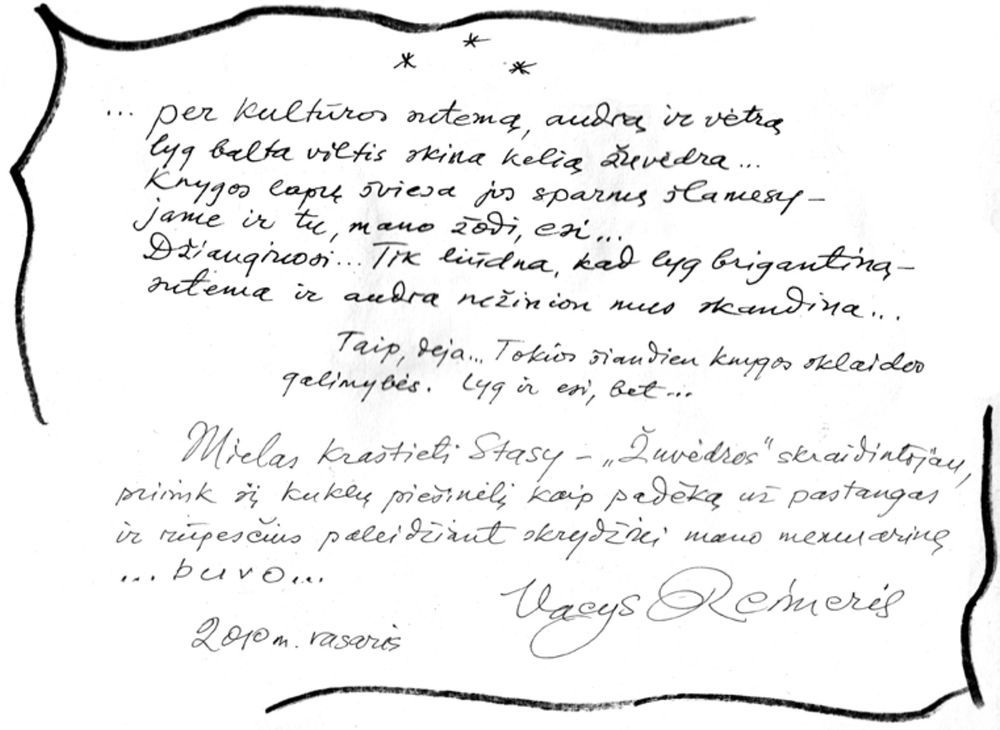 * * *
... per kultūros sutemą, audrą ir vėtrą
lyg balta viltis skina kelią žuvėdra...
Knygos lapų šviesa jos sparnų šlamesy –
jame ir tu, mano žodi, esi...
Džiaugiuosi... Tik liūdna, kad lyg brigantiną –
sutema ir audra nežinion mus skandina...
Taip, deja... Tokios šiandien knygos sklaidos
galimybės. Lyg ir esi, bet...
Mielas kraštieti Stasy – „Žuvėdros“ skraidintojau,
priimk šį kuklų piešinėlį kaip padėką už pastangas
ir rūpesčius paleidžiant skrydžiui mano memuarinę
... buvo...
Vacys Reimeris
2010 m. vasaris